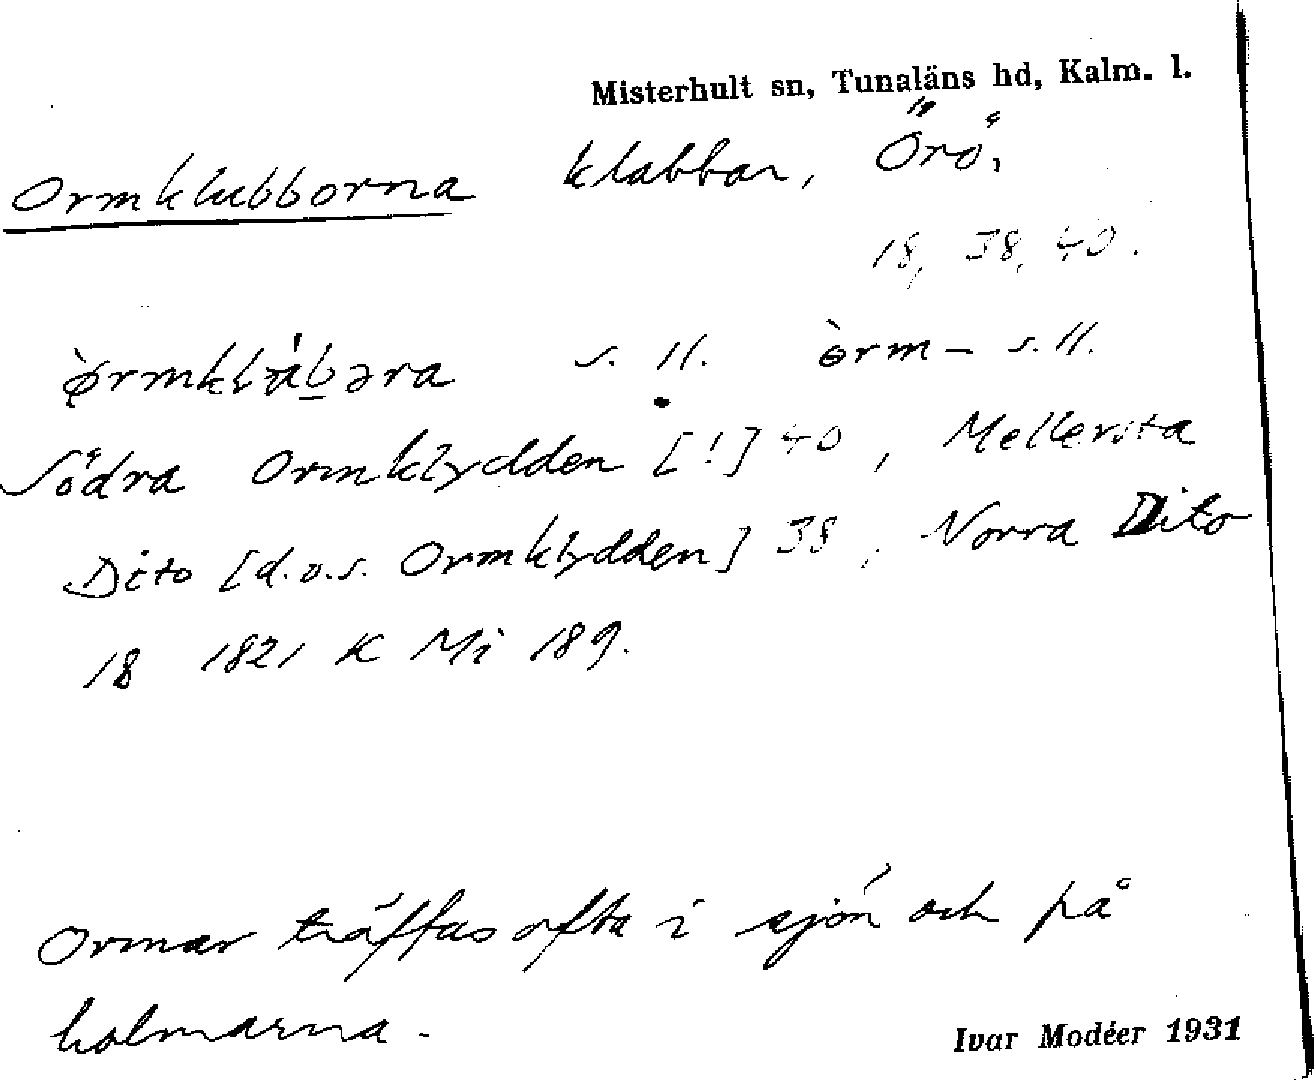 Misterhult sn, Tunaläns hd, Kalm. l.
Ormklubborna klabbar, Örö,
18, 38, 40.
s. 11. òrm- s. 11.
Södra Ormklydden [!] 40, Mellersta
Dito [d.v.s. Ormklydden] 38, Norra Dito
18 1821 K Mi 189.
Ormar träffas ofta i sjön och på
holmarna.
Ivar Modéer 1931